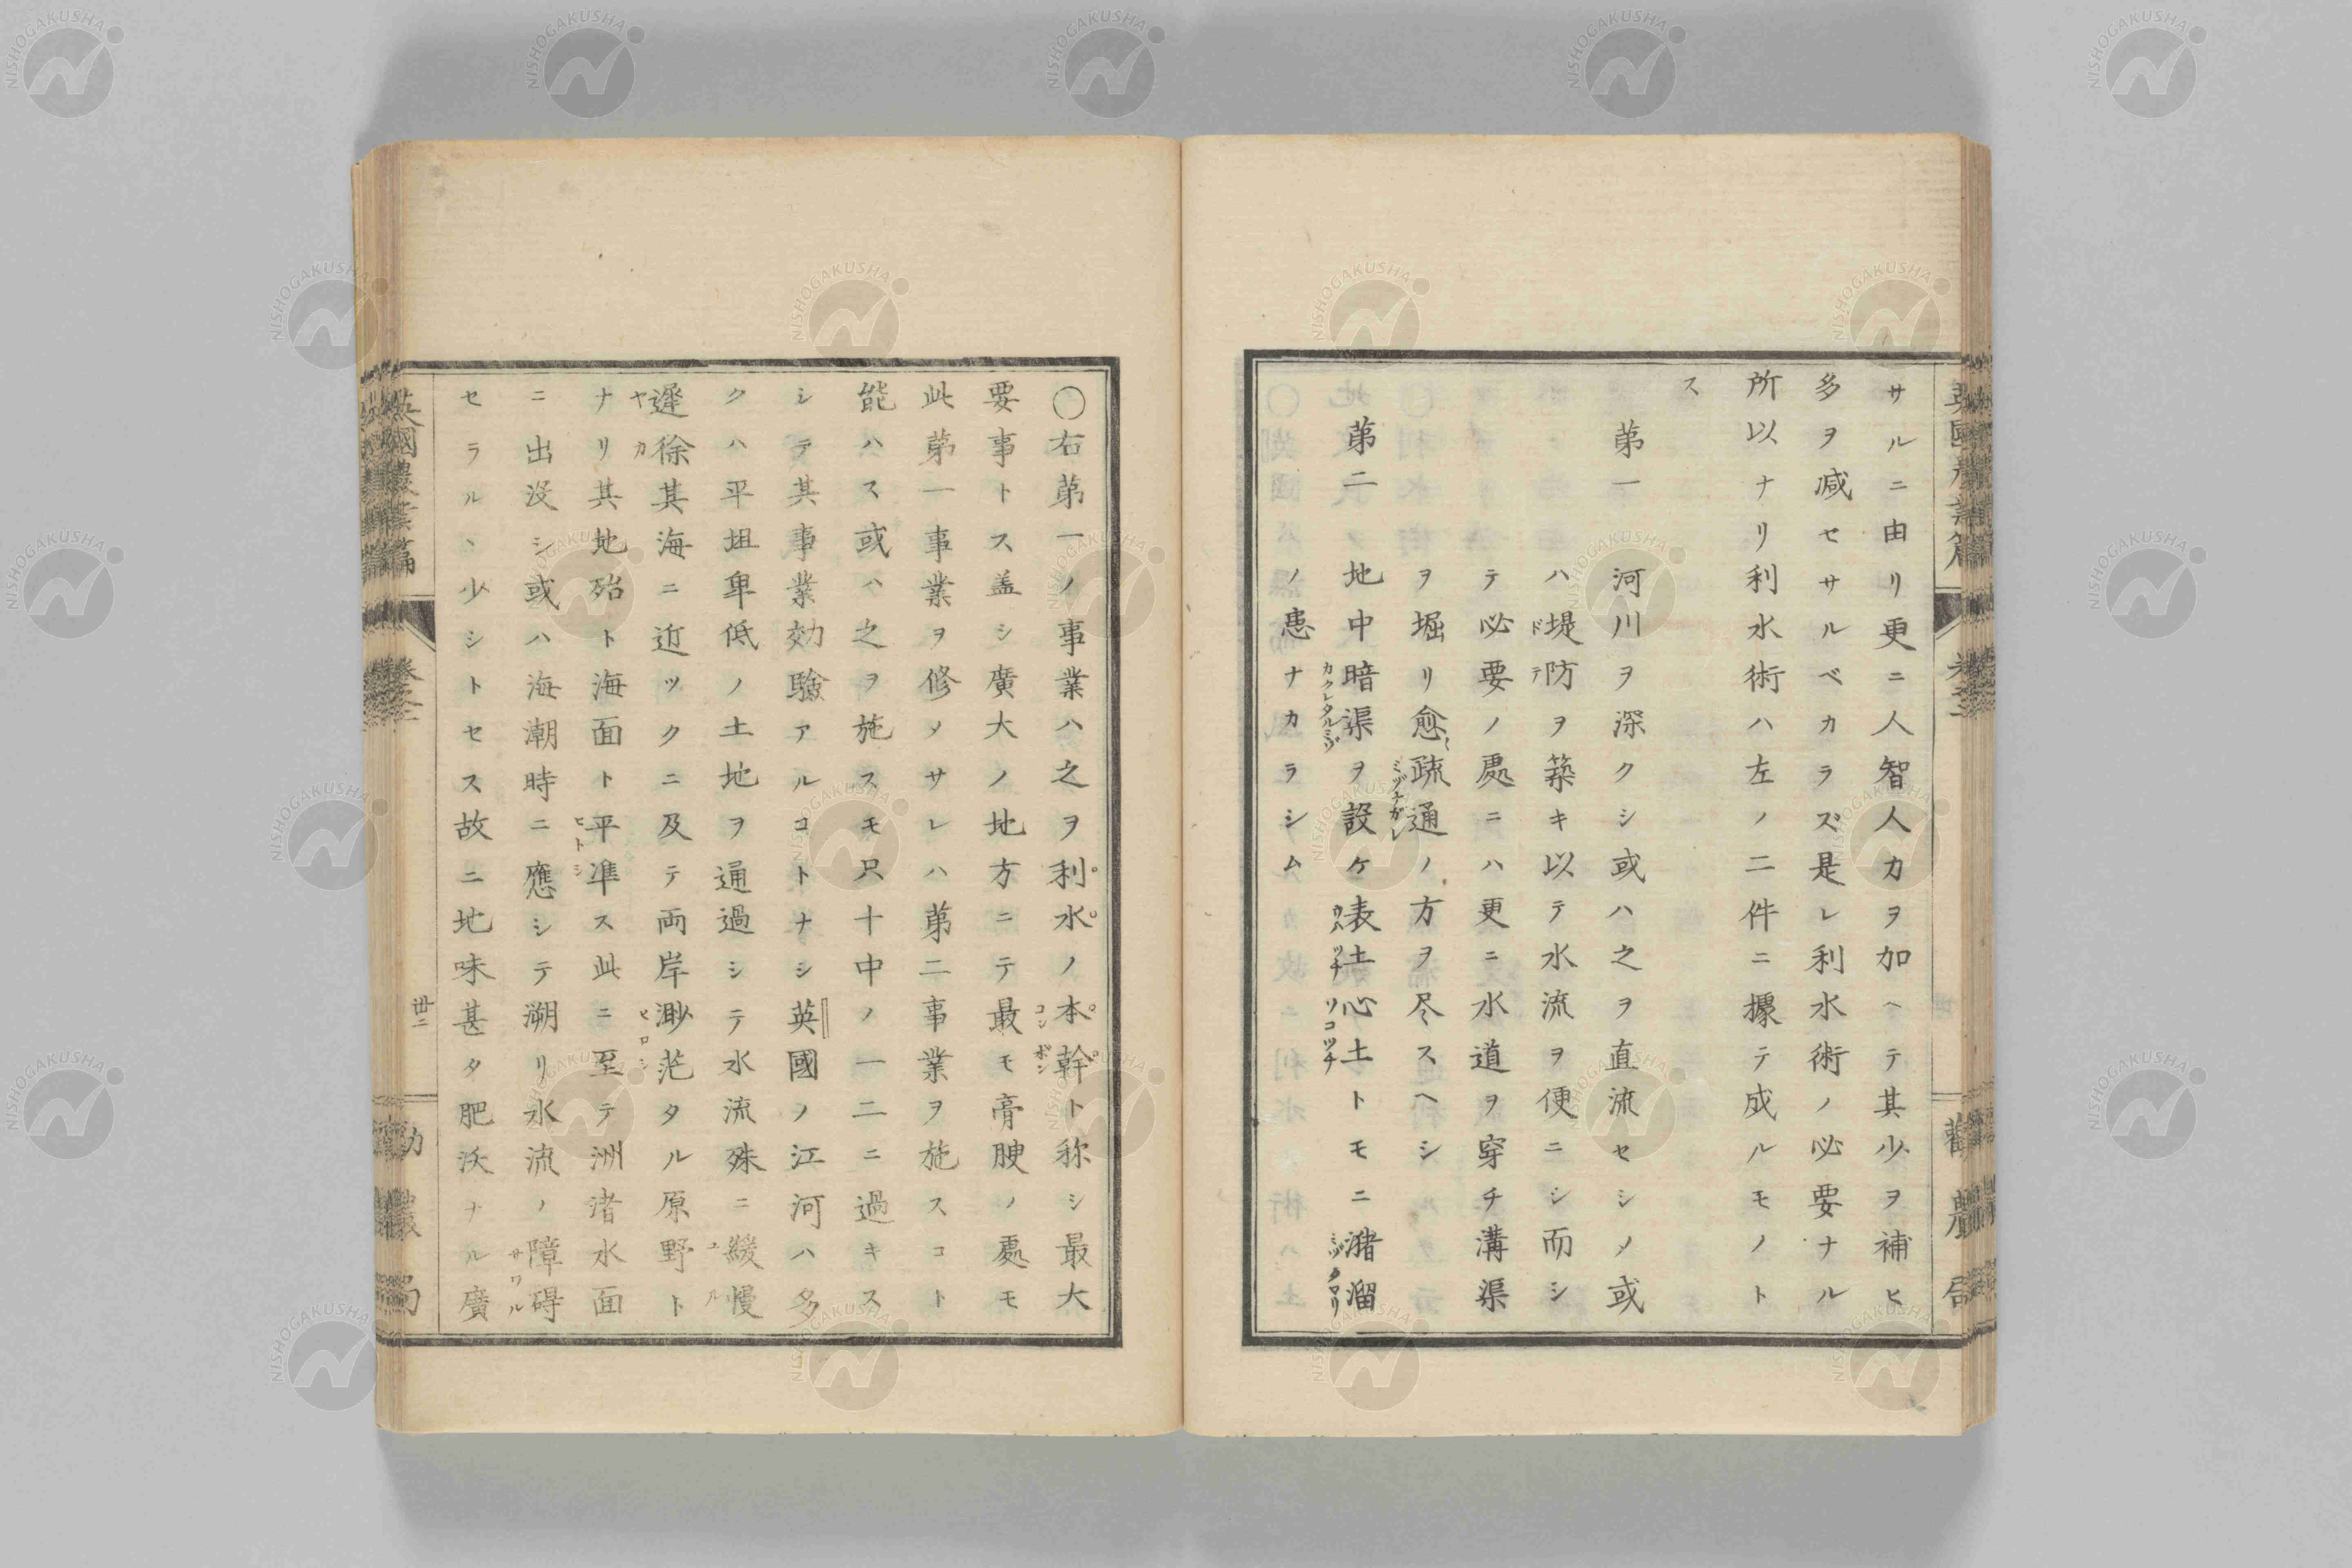 サルニ由リ更ニ人智人力ヲ加ヘテ其少ヲ補ヒ
多ヲ減セサルベカラズ是レ利水術ノ必要ナル
所以ナリ利水術ハ左ノ二件ニ據テ成ルモノト
ス
第一 河川ヲ深クシ或ハ之ヲ直流セシメ或
ハ堤防ヲ築キ以テ水流ヲ便ニシ而シ
ドテ
テ必要ノ處ニハ更ニ水道ヲ穿チ溝渠
ヲ堀リ愈〻疏通ノ方ヲ尽スヘシ
ミヅナガレ
第二 地中暗渠ヲ設ケ表土心土トモニ瀦溜
カクレタルミゾ ウハツチ ソコツチ ミヅタマリ
ノ患ナカラシム
○右第一ノ事業ハ之ヲ利水ノ本幹ト称シ最大
コンポン
要事トス盖シ廣大ノ地方ニテ最モ膏腴ノ處モ
此第一事業ヲ修メサレハ第二事業ヲ施スコト
能ハス或ハ之ヲ施スモ只十中ノ一二ニ過キス
シテ其事業効驗アルコトナシ英國ノ江河ハ多
クハ平坦卑低ノ土地ヲ通過シテ水流殊ニ緩慢
ユル
遲徐其海ニ近ツクニ及テ両岸渺茫タル原野ト
ヤカ ヒロシ
ナリ其地殆ト海面ト平準ス此ニ至テ洲渚水面
ヒトシ
ニ出没シ或ハ海潮時ニ應シテ溯リ水流ノ障碍
サワル
セラルヽ少シトセス故ニ地味甚タ肥沃ナル廣
英國農業篇
卷二
卅二
勧農局